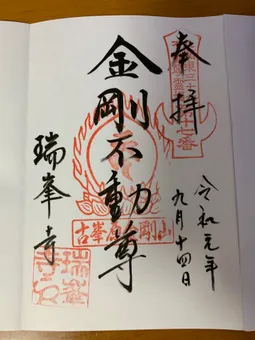 奉拝
令和元年
九月十四日
金剛不動尊
瑞峯寺
古峯原金剛山
瑞峯
寺印